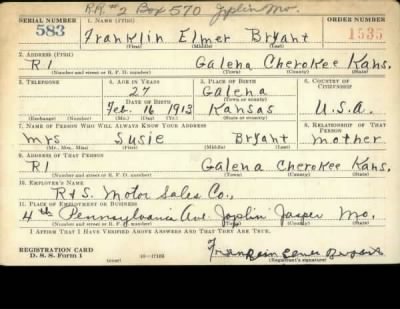 R.R. #2 Box 570 Joplin Mo.
SERIAL NUMBER 1. NAME (Print) ORDER NUMBER
583 Franklin Elmer Bryant 1535
(First) (Middle) (Last)
2. ADDRESS (Print)
R 1 Galena Cherokee Kans.
(Number and street or R. F. D. number) (Town) (County) (State)
3. TELEPHONE 4. AGE IN YEARS 5. PLACE OF BIRTH 6. COUNTRY OF CITIZENSHIP
27 Galena
DATE OF BIRTH (Town or county)
Feb. 16 1913 Kansas U.S.A.
(Exchange) (Number) (Mo.) (Day) (Yr.) (State or country)
7. NAME OF PERSON WHO WILL ALWAYS KNOW YOUR ADDRESS 8. RELATIONSHIP OF THAT PERSON
Mrs Susie Bryant mother
(Mr., Mrs., Miss) (First) (Middle) (Last)
9. ADDRESS OF THAT PERSON
R 1 Galena Cherokee Kans.
(Number and street or R. F. D. number) (Town) (County) (State)
10. EMPLOYER'S NAME
R & S. Motor Sales Co.,
11. PLACE OF EMPLOYMENT OR BUSINESS
4th Pennsylvania Ave. Joplin Jasper Mo.
(Number and street or R. F. D. number) (Town) (County) (State)
I AFFIRM THAT I HAVE VERIFIED ABOVE ANSWERS AND THAT THEY ARE TRUE.
REGISTRATION CARD Franklin Elmer Bryant
D. S. S. Form 1 (over) (Registrant's signature)